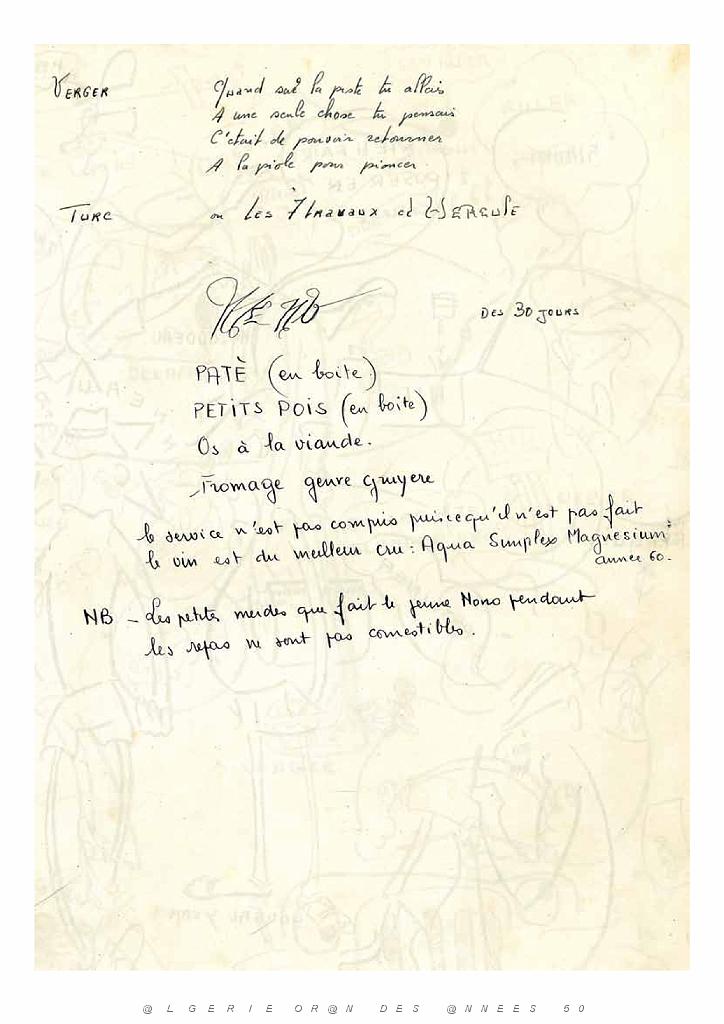 VERGER Quand sur la piste tu allais
A une seule chose tu pensais
C'était de pouvoir retourner
A la piole pour pioncer
TURC ou Les 7 travaux d'HERCULE
MENU DES 30 JOURS
PATÈ (en boite)
PETITS POIS (en boite)
Os à la viande.
Fromage genre gruyere
le service n'est pas compris puisequ'il n'est pas fait
le vin est du meilleur cru : Aqua Simplex Magnesium
année 60.
NB - Les petites merdes que fait le jeune Nono pendant
les repas ne sont pas comestibles.
@LGERIE OR@N DES @NNEES 50